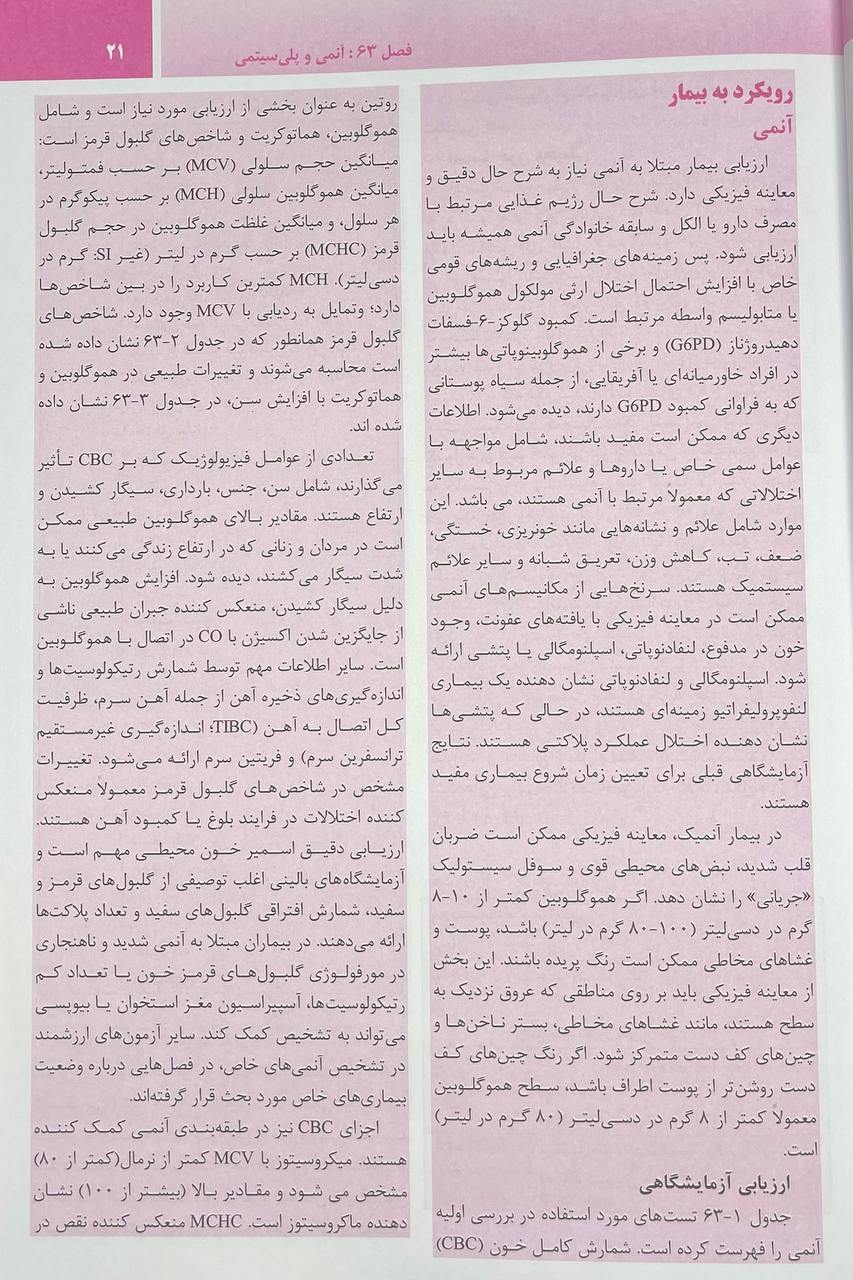 فصل ۶۳: آنمی و پلی‌سیتمی
۲۱
رویکرد به بیمار
آنمی
ارزیابی بیمار مبتلا به آنمی نیاز به شرح حال دقیق و
معاینه فیزیکی دارد. شرح حال رژیم غذایی مرتبط با
مصرف دارو یا الکل و سابقه خانوادگی آنمی همیشه باید
ارزیابی شود. پس زمینه‌های جغرافیایی و ریشه‌های قومی
خاص با افزایش احتمال اختلال ارثی مولکول هموگلوبین
یا متابولیسم واسطه مرتبط است. کمبود گلوکز-۶-فسفات
دهیدروژناز (G6PD) و برخی از هموگلوبینوپاتی‌ها بیشتر
در افراد خاورمیانه‌ای یا آفریقایی، از جمله سیاه پوستانی
که به فراوانی کمبود G6PD دارند، دیده می‌شود. اطلاعات
دیگری که ممکن است مفید باشند، شامل مواجهه با
عوامل سمی خاص یا داروها و علائم مربوط به سایر
اختلالاتی که معمولا مرتبط با آنمی هستند، می باشد. این
موارد شامل علائم و نشانه‌هایی مانند خونریزی، خستگی،
ضعف، تب، کاهش وزن، تعریق شبانه و سایر علائم
سیستمیک هستند. سرنخ‌هایی از مکانیسم‌های آنمی
ممکن است در معاینه فیزیکی با یافته‌های عفونت، وجود
خون در مدفوع، لنفادنوپاتی، اسپلنومگالی یا پتشی ارائه
شود. اسپلنومگالی و لنفادنوپاتی نشان دهنده یک بیماری
لنفوپرولیفراتیو زمینه‌ای هستند، در حالی که پتشی‌ها
نشان دهنده اختلال عملکرد پلاکتی هستند. نتایج
آزمایشگاهی قبلی برای تعیین زمان شروع بیماری مفید
هستند.
در بیمار آنمیک، معاینه فیزیکی ممکن است ضربان
قلب شدید، نبض‌های محیطی قوی و سوفل سیستولیک
«جریانی» را نشان دهد. اگر هموگلوبین کمتر از ۱۰-۸
گرم در دسی‌لیتر (۱۰۰-۸۰ گرم در لیتر) باشد، پوست و
غشاهای مخاطی ممکن است رنگ پریده باشند. این بخش
از معاینه فیزیکی باید بر روی مناطقی که عروق نزدیک به
سطح هستند، مانند غشاهای مخاطی، بستر ناخن‌ها و
چین‌های کف دست متمرکز شود. اگر رنگ چین‌های کف
دست روشن‌تر از پوست اطراف باشد، سطح هموگلوبین
معمولاً کمتر از ۸ گرم در دسی‌لیتر (۸۰ گرم در لیتر)
است.
ارزیابی آزمایشگاهی
جدول ۱-۶۳ تست‌های مورد استفاده در بررسی اولیه
آنمی را فهرست کرده است. شمارش کامل خون (CBC)
روتین به عنوان بخشی از ارزیابی مورد نیاز است و شامل
هموگلوبین، هماتوکریت و شاخص‌های گلبول قرمز است:
میانگین حجم سلولی (MCV) بر حسب فمتولیتر،
میانگین هموگلوبین سلولی (MCH) بر حسب پیکوگرم در
هر سلول، و میانگین غلظت هموگلوبین در حجم گلبول
قرمز (MCHC) بر حسب گرم در لیتر (غیر SI: گرم در
دسی‌لیتر). MCH کمترین کاربرد را در بین شاخص‌ها
دارد؛ وتمایل به ردیابی با MCV وجود دارد. شاخص‌های
گلبول قرمز همانطور که در جدول ۲-۶۳ نشان داده شده
است محاسبه می‌شوند و تغییرات طبیعی در هموگلوبین و
هماتوکریت با افزایش سن، در جدول ۳-۶۳ نشان داده
شده اند.
تعدادی از عوامل فیزیولوژیک که بر CBC تأثیر
می‌گذارند، شامل سن، جنس، بارداری، سیگار کشیدن و
ارتفاع هستند. مقادیر بالای هموگلوبین طبیعی ممکن
است در مردان و زنانی که در ارتفاع زندگی می‌کنند یا به
شدت سیگار می‌کشند، دیده شود. افزایش هموگلوبین به
دلیل سیگار کشیدن، منعکس کننده جبران طبیعی ناشی
از جایگزین شدن اکسیژن با CO در اتصال با هموگلوبین
است. سایر اطلاعات مهم توسط شمارش رتیکولوسیت‌ها و
اندازه‌گیری‌های ذخیره آهن از جمله آهن سرم، ظرفیت
کل اتصال به آهن (TIBC؛ اندازه‌گیری غیرمستقیم
ترانسفرین سرم) و فریتین سرم ارائه می‌شود. تغییرات
مشخص در شاخص‌های گلبول قرمز معمولاً منعکس
کننده اختلالات در فرایند بلوغ یا کمبود آهن هستند.
ارزیابی دقیق اسمیر خون محیطی مهم است و
آزمایشگاه‌های بالینی اغلب توصیفی از گلبول‌های قرمز و
سفید، شمارش افتراقی گلبول‌های سفید و تعداد پلاکت‌ها
ارائه می‌دهند. در بیماران مبتلا به آنمی شدید و ناهنجاری
در مورفولوژی گلبول‌های قرمز خون یا تعداد کم
رتیکولوسیت‌ها، آسپیراسیون مغز استخوان یا بیوپسی
می‌تواند به تشخیص کمک کند. سایر آزمون‌های ارزشمند
در تشخیص آنمی‌های خاص، در فصل‌هایی درباره وضعیت
بیماری‌های خاص مورد بحث قرار گرفته‌اند.
اجزای CBC نیز در طبقه‌بندی آنمی کمک کننده
هستند. میکروسیتوز با MCV کمتر از نرمال(کمتر از ۸۰)
مشخص می شود و مقادیر بالا (بیشتر از ۱۰۰) نشان
دهنده ماکروسیتوز است. MCHC منعکس کننده نقص در